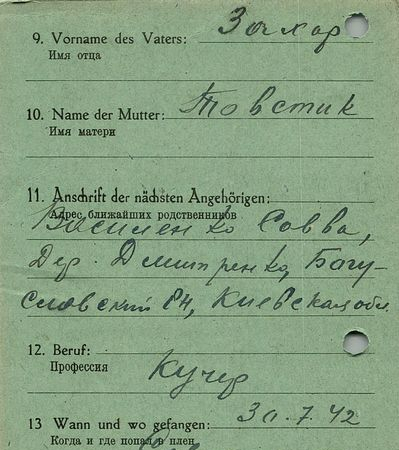 9. Vorname des Vaters: Захар
Имя отца
10. Name der Mutter: Товстик
Имя матери
11. Anschrift der nächsten Angehörigen:
Адрес ближайших родственников
Василенко Савва,
Дер. Дмитренко, Богу-
славский рн, Киевская обл.
12. Beruf:
Профессия
Кучер
13 Wann und wo gefangen: 30.7.42
Когда и где попал в плен